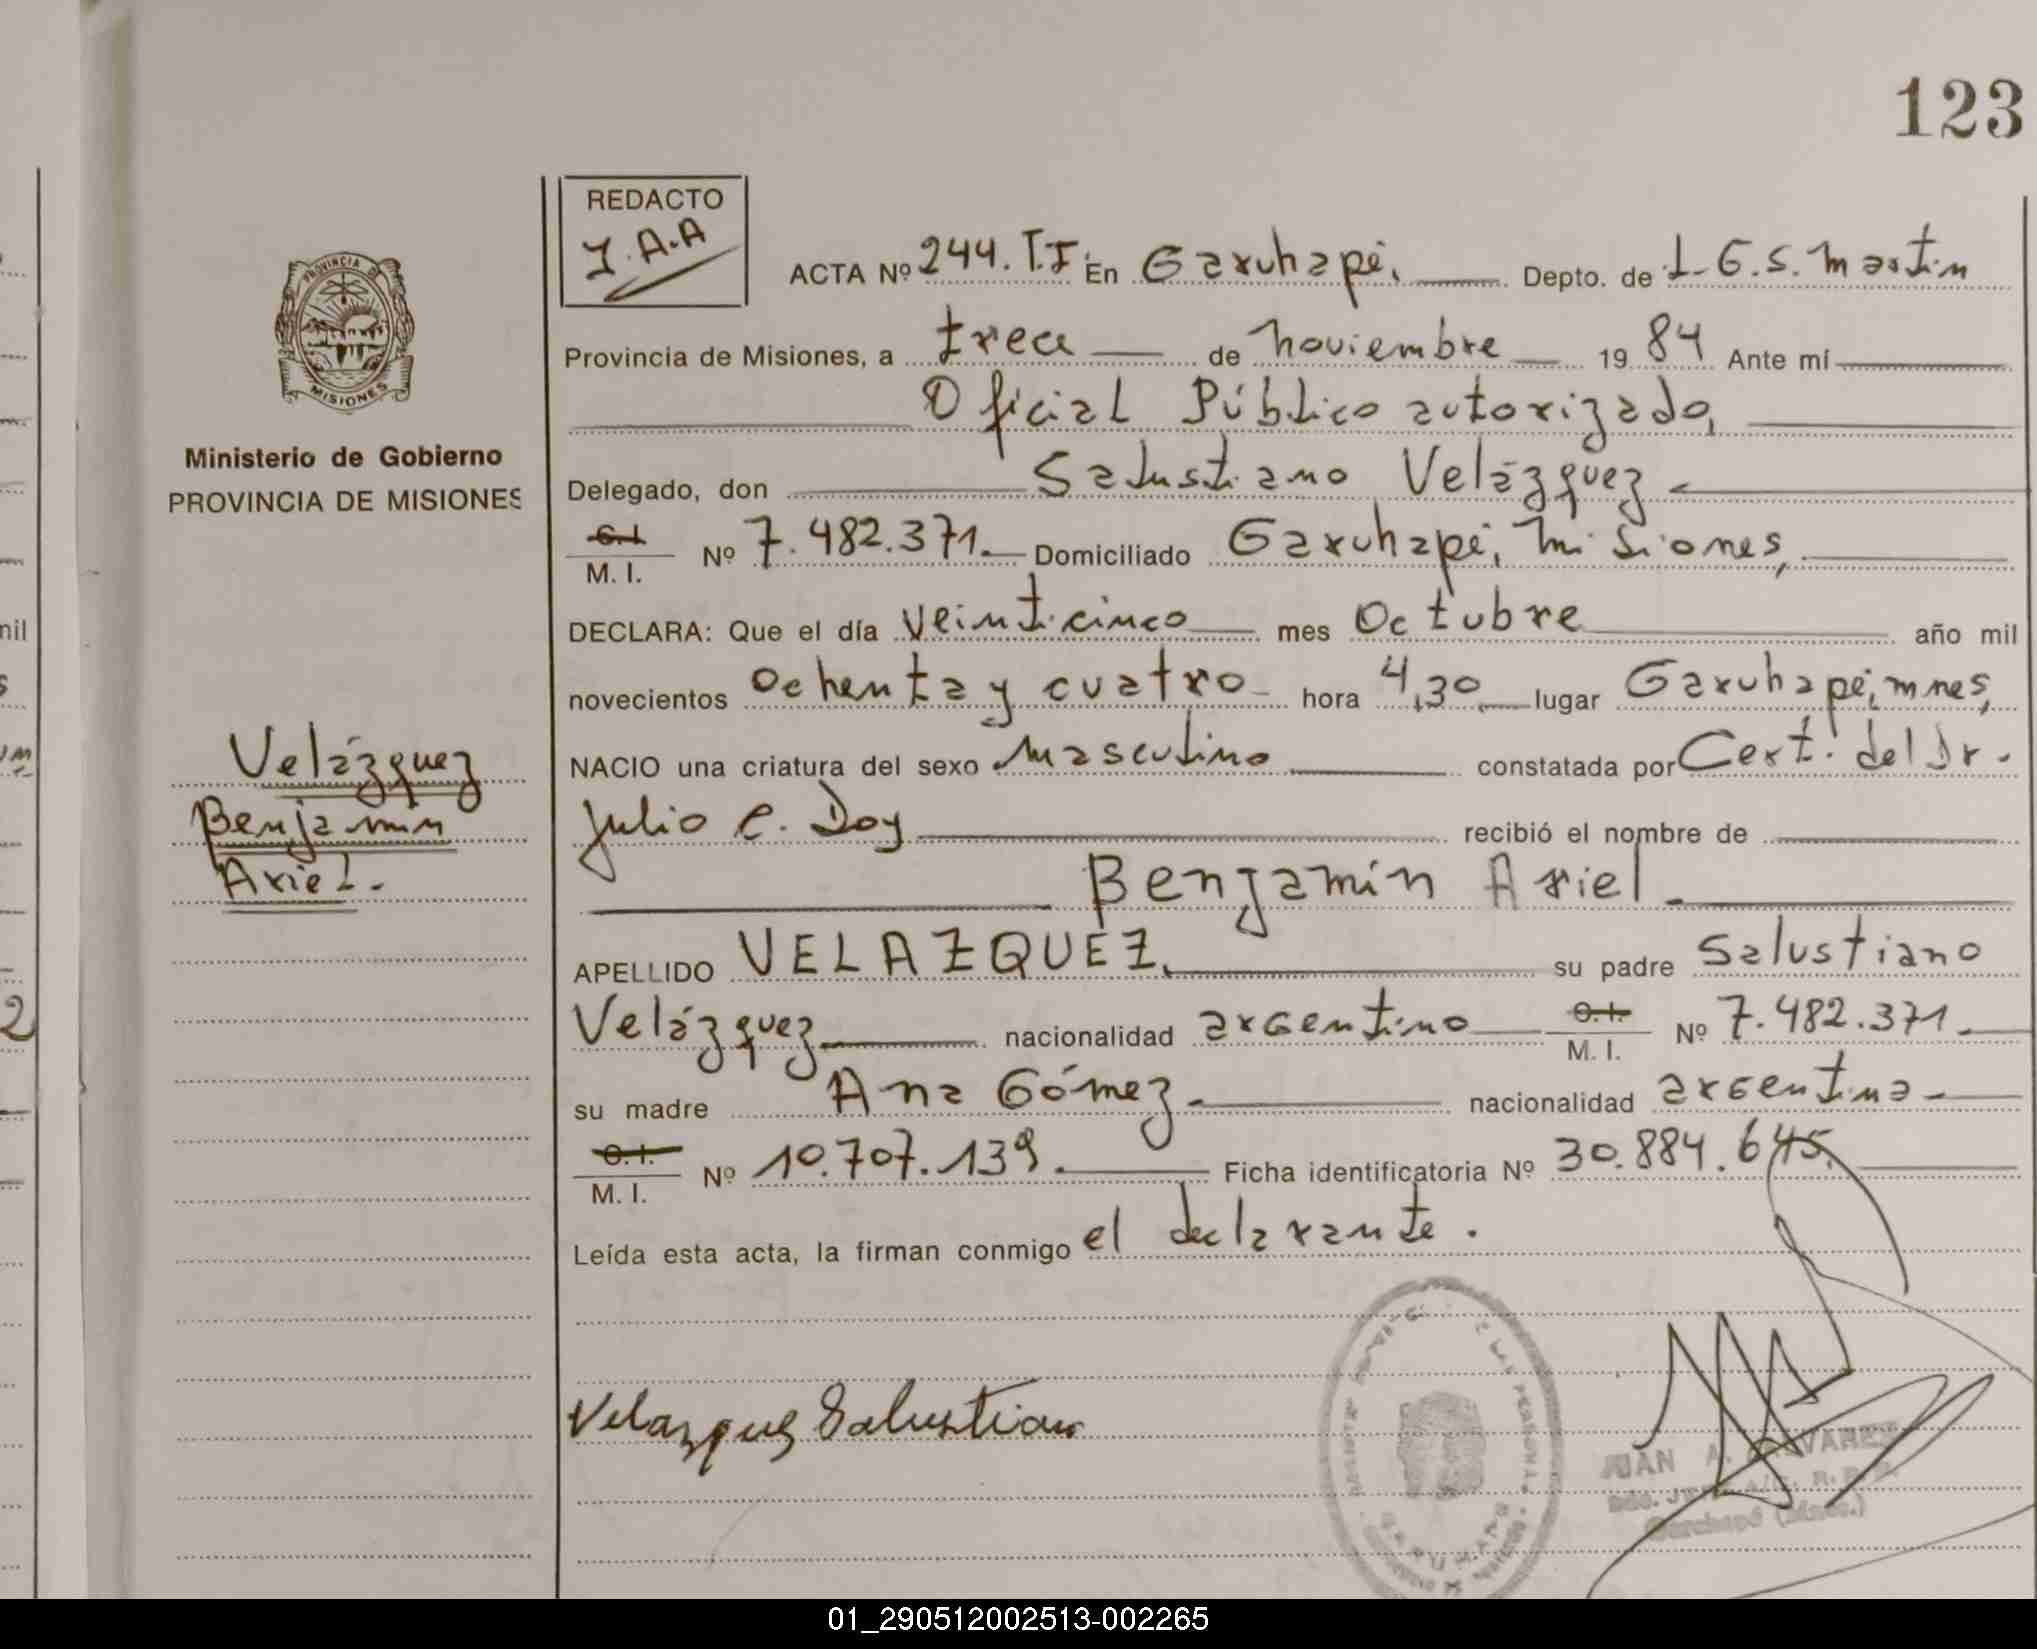 123
REDACTO
J.A.A
ACTA Nº 244. T.I En Garuhapé, Depto. de L.G.S. Martín
Provincia de Misiones, a trece de noviembre 1984 Ante mí
Oficial Público autorizado,
Delegado, don Salustiano Velázquez
C.I. M. I. Nº 7.482.371. Domiciliado Garuhapé, Misiones,
DECLARA: Que el día veinticinco mes Octubre año mil
novecientos ochenta y cuatro hora 4,30 lugar Garuhapé, mnes,
NACIO una criatura del sexo masculino constatada por Cert. del Dr.
Julio C. Doy recibió el nombre de
Benjamín Ariel
APELLIDO VELAZQUEZ. su padre Salustiano
Velázquez nacionalidad argentino C.I. M. I. Nº 7.482.371.
su madre Ana Gómez. nacionalidad argentina
C.I. M. I. Nº 10.707.139. Ficha identificatoria Nº 30.884.645.
Leída esta acta, la firman conmigo el declarante.
Velazquez Salustiano
JUAN A.
Garuhapé (Mnes.)
PROVINCIA DE
MISIONES
Ministerio de Gobierno
PROVINCIA DE MISIONES
Velázquez
Benjamín
Ariel.
01_290512002513-002265